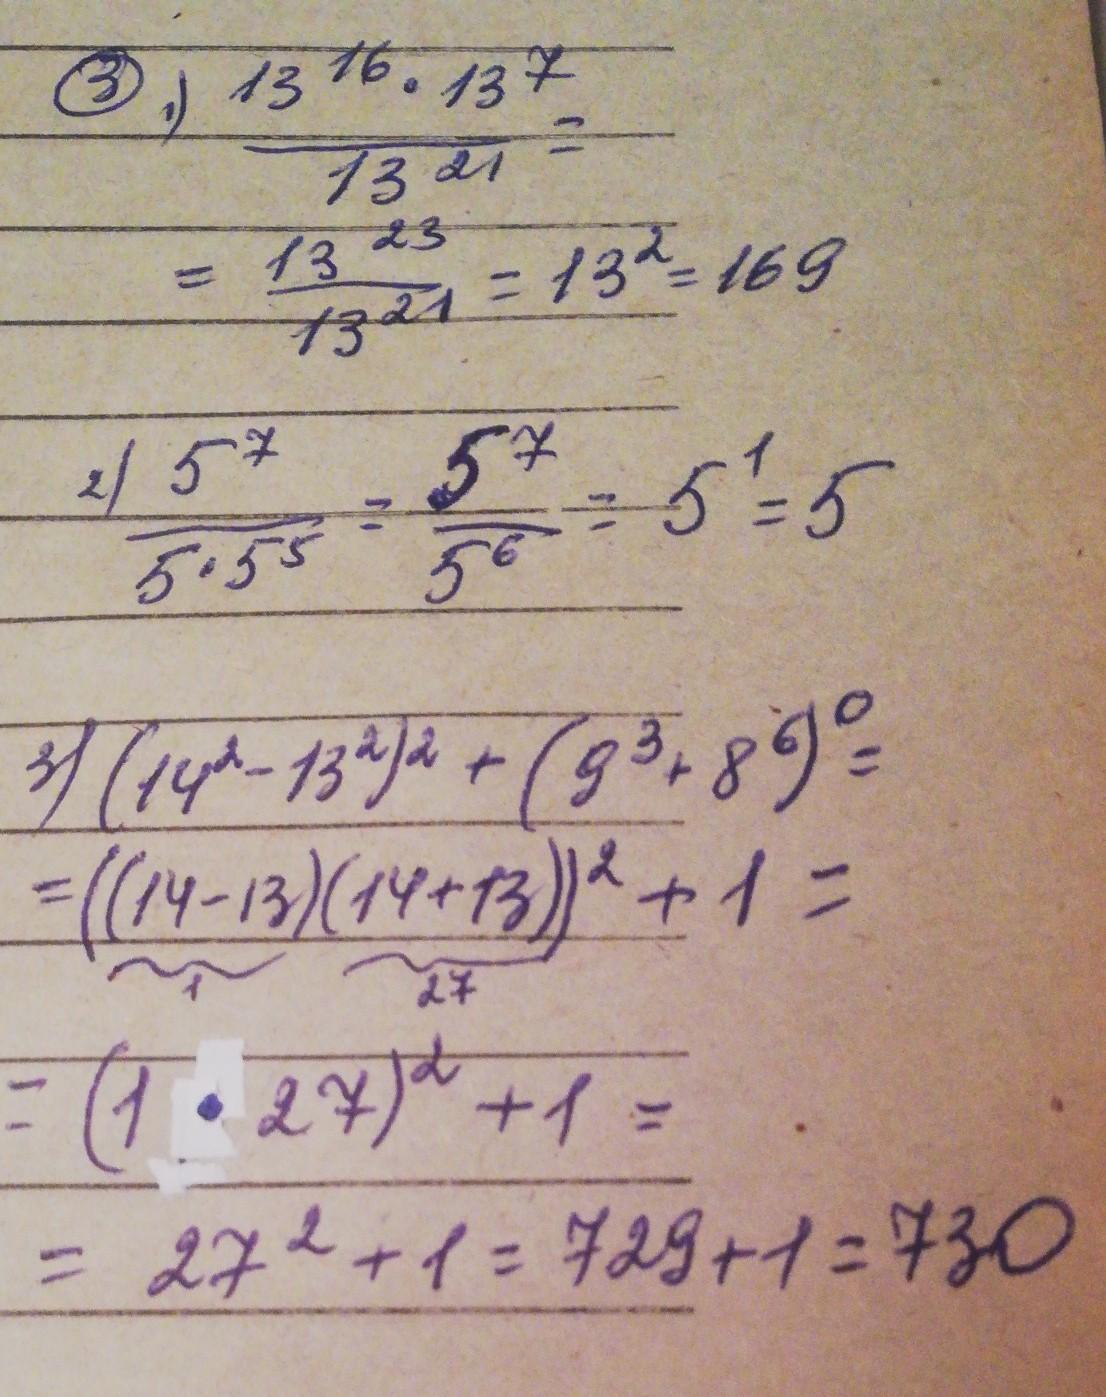 ③ 1) 13^16 · 13^7 / 13^21 =
= 13^23 / 13^21 = 13^2 = 169
2) 5^7 / 5·5^5 = 5^7 / 5^6 = 5^1 = 5
3) (14^2 - 13^2)^2 + (9^3 + 8^6)^0 =
= ((14-13)(14+13))^2 + 1 =
1 27
= (1 · 27)^2 + 1 =
= 27^2 + 1 = 729 + 1 = 730